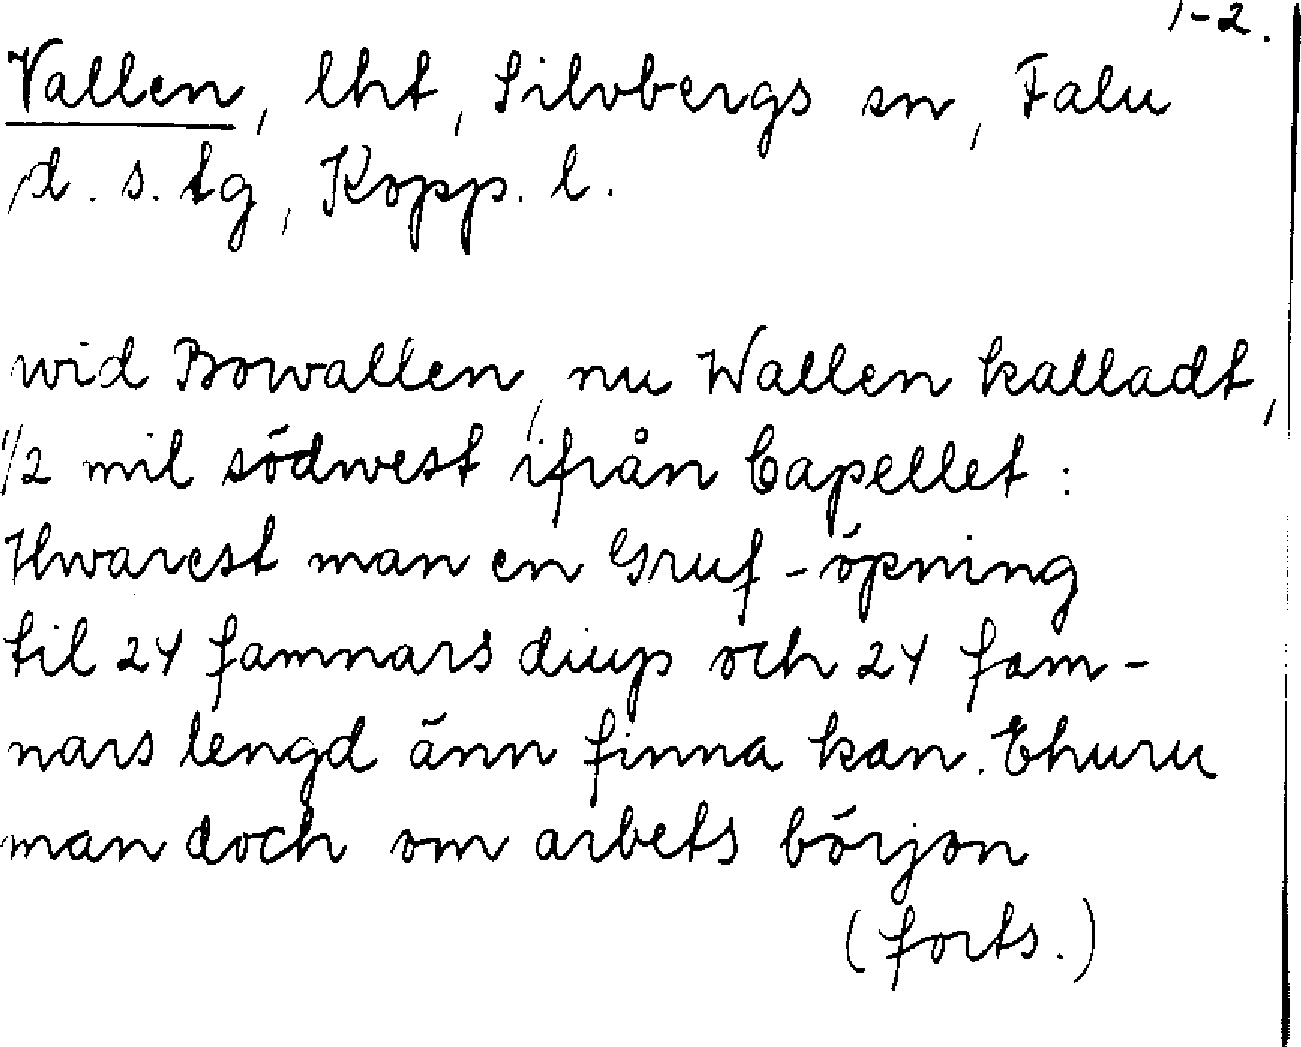 1-2.
Vallen, lht, Silvbergs sn, Falu
d. s. tg, Kopp. l.
wid Bowallen, nu Wallen kalladt,
1/2 mil södwest ifrån Capellet:
Hwarest man en Gruf-öpning
til 24 famnars diup och 24 fam-
nars lengd änn finna kan. Ehuru
man doch om arbets börjon
(forts.)